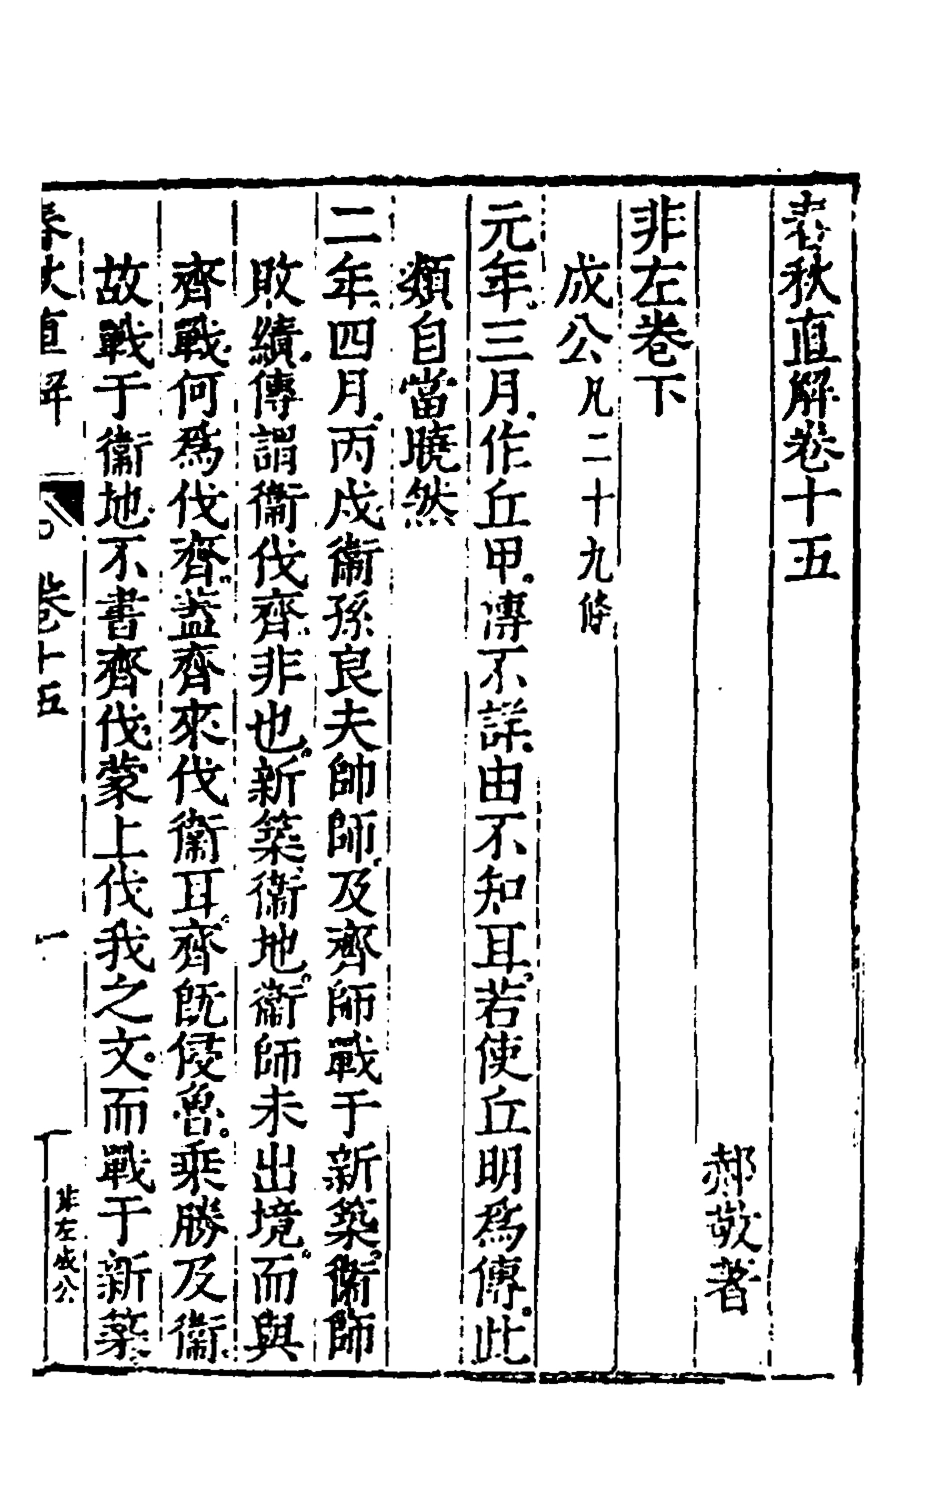 春秋直解卷十五
郝敬著
非左卷下
成公凡二十九條
元年三月作丘甲傳不詳由不知耳若使丘明爲傳此
類自當曉然
二年四月丙戌衞孫良夫帥師及齊師戰于新築衞師
敗績傳謂衞伐齊非也新築衞地衞師未出境而與
齊戰何爲伐齊葢齊來伐衞耳齊旣侵魯乘勝及衞
故戰于衞地不書齊伐蒙上伐我之文而戰于新築
春秋直解
卷十五
一
非左成公